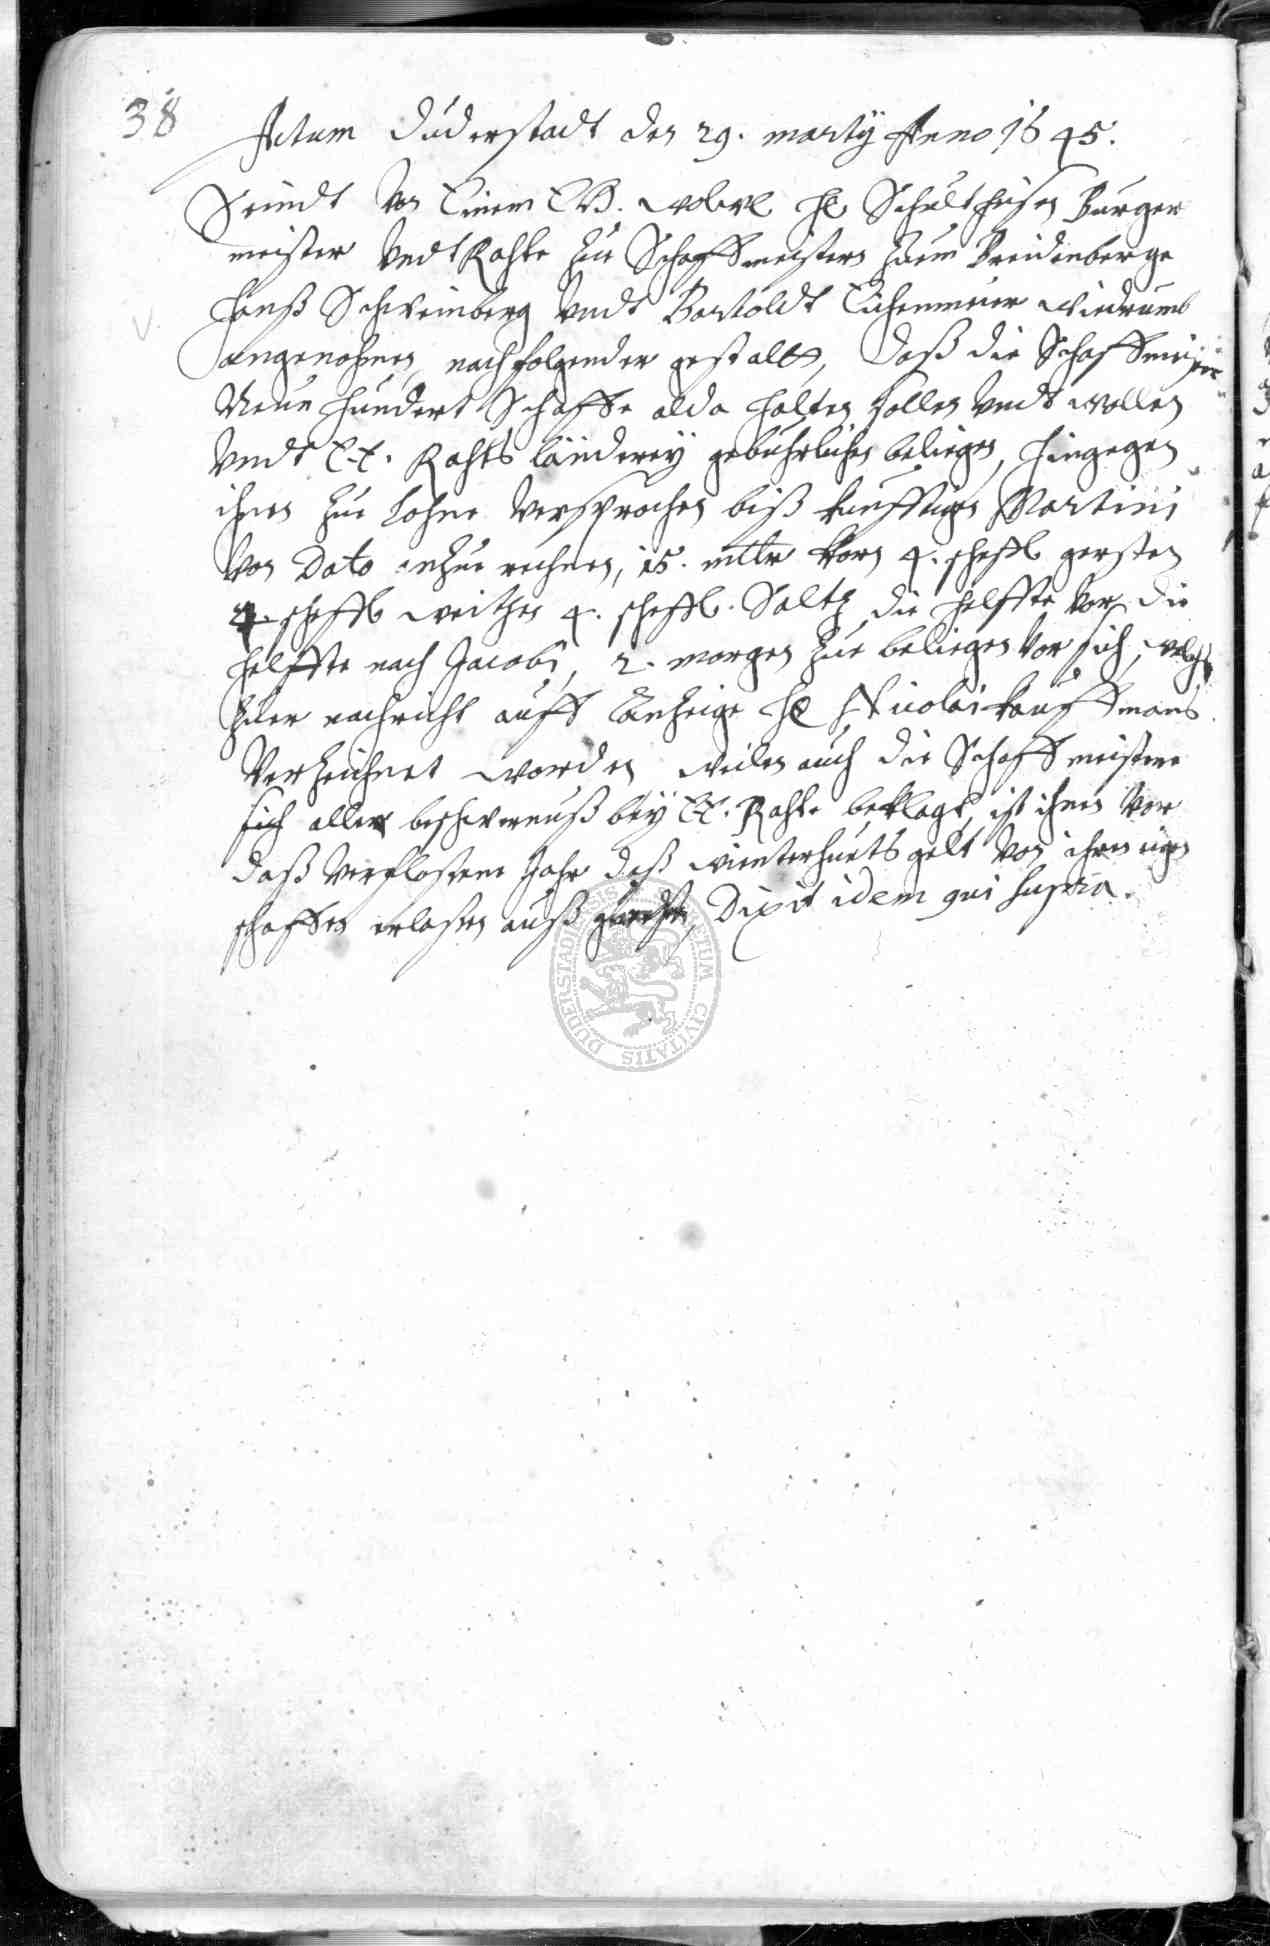 38
Actum Duderstadt den 29. martÿ Anno 1645.
Seindt von Einem E W. wolwl. H. Schultheisen Burger
meister Vndt Rahte zue Schaffmeistern zuem Breidenberge
Hanß Schweinberg vndt Bartoldt Eichenmeier wiedrumb
angenohmen nachfolgender gestalt, daß die Schaffmeister
Neun Hundert Schaffe alda halten sollen vndt wollen
vndt E. E. Rahts länderey gebuhrlichen beliegen, Hingegen
ihnen zue Lohne versprochen biß kunfftigen Martini
von Dato anzue rechnen, 15. mltr Korn 4. scheffl gersten
4. scheffl weitzen 4. scheffl. Saltz die helffte vor, die
helffte nach Jacobi, 2. morgen zue beliegen vor sich, welchs
zuer nachricht auff anzeige H. Nicolai Kauffmans
verzeichnet worden weilen auch die Schaffmeistere
sich aller beschwernuß bey E. E. Rahte beklagt, ist ihnen vor
daß verflossene Jahr daß winterhuets gelt von ihren eigen
schaffen erlassen auß Dixit idem qui supra.
DUDERSTADIENSIS CIVITATIS